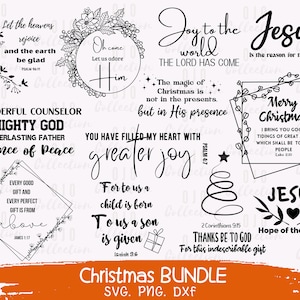 Let the heavens
rejoice
and the earth
be glad
Oh come,
Let us adore
Him
Joy to the
world
THE LORD HAS COME
Jesus
is the reason for
The magic of
Christmas is
not in the presents
but in His presence
Merry
Christmas
I BRING YOU GOOD
TIDINGS OF GREAT
WHICH SHALL BE TO
PEOPLE
Luke 2:10
DERFUL COUNSELOR
MIGHTY GOD
VERLASTING FATHER
nce of Peace
YOU HAVE FILLED MY HEART WITH
greater joy
PSALM 4:7
EVERY GOOD
GIFT AND
EVERY PERFECT
GIFT IS FROM
above
For to us a
child is born
To us a son
is given
Isaiah 9:6
2 Corinthians 9:15
THANKS BE TO GOD
For this indescribable gift
JESU
Hope of the
Christmas BUNDLE
SVG. PNG. DXf